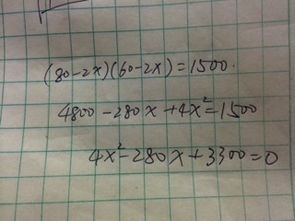 (80-2x)(60-2x)=1500.
4800-280x+4x²=1500
4x²-280x+3300=0